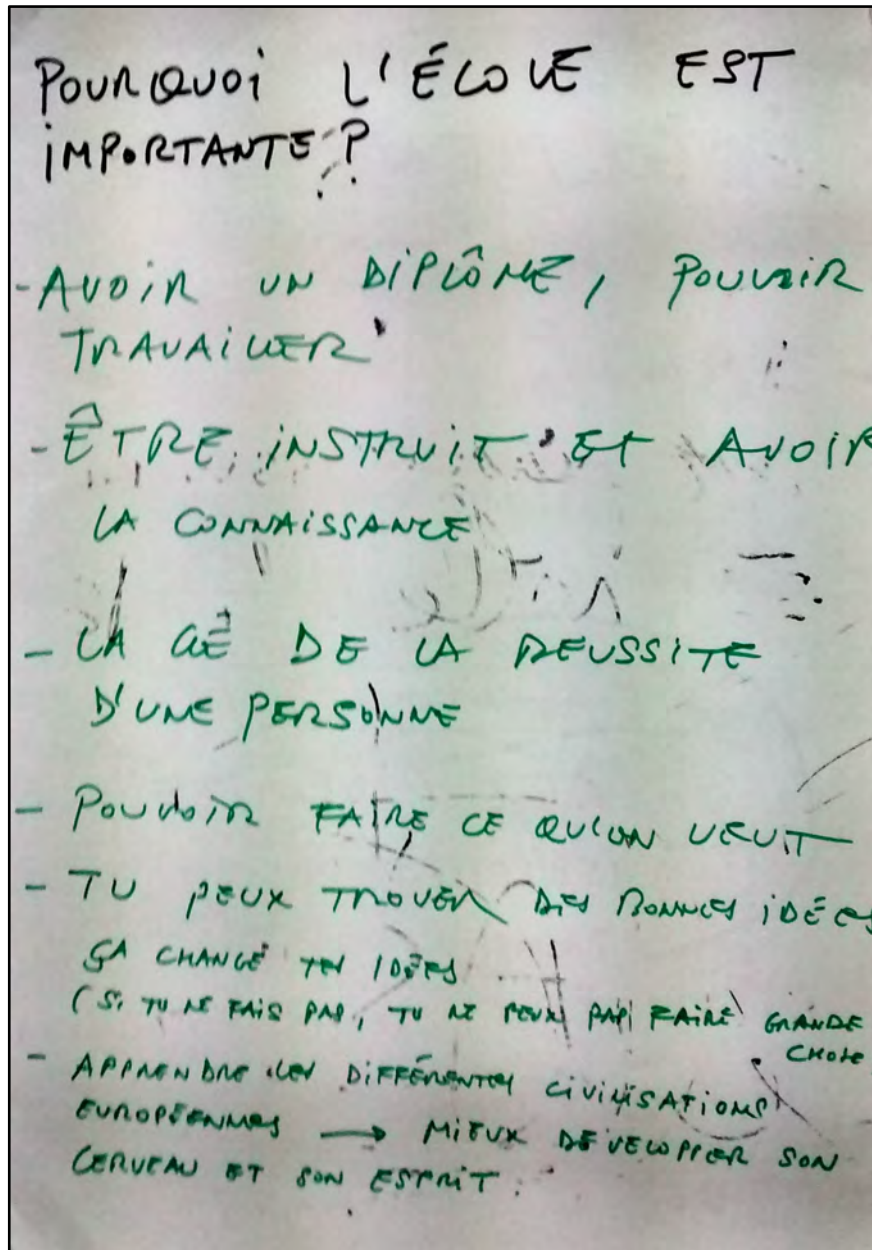 POURQUOI L'ÉCOLE EST
IMPORTANTE ?
- AVOIR UN DIPLÔME, POUVOIR
TRAVAILLER
- ÊTRE INSTRUIT ET AVOIR
LA CONNAISSANCE
- LA CLÉ DE LA REUSSITE
D'UNE PERSONNE
- POUVOIR FAIRE CE QU'ON VEUT
- TU PEUX TROUVER DES BONNES IDÉES
ÇA CHANGE TES IDÉES
(SI TU NE FAIS PAS, TU NE PEUX PAS FAIRE GRANDE
CHOSE
- APPRENDRE LES DIFFÉRENTES CIVILISATIONS
EUROPÉENNES → MIEUX DÉVELOPPER SON
CERVEAU ET SON ESPRIT.